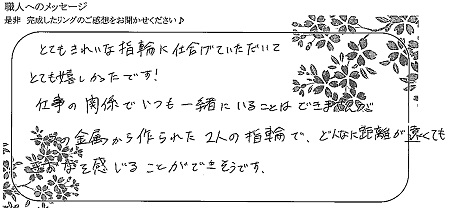 職人へのメッセージ
是非 完成したリングのご感想をお聞かせください♪
とてもきれいな指輪に仕上げていただいて
とても嬉しかったです!
仕事の関係でいつも一緒にいることはできませんが
つの金属から作られた2人の指輪で、どんなに距離が遠くても
きずなを感じることができそうです。